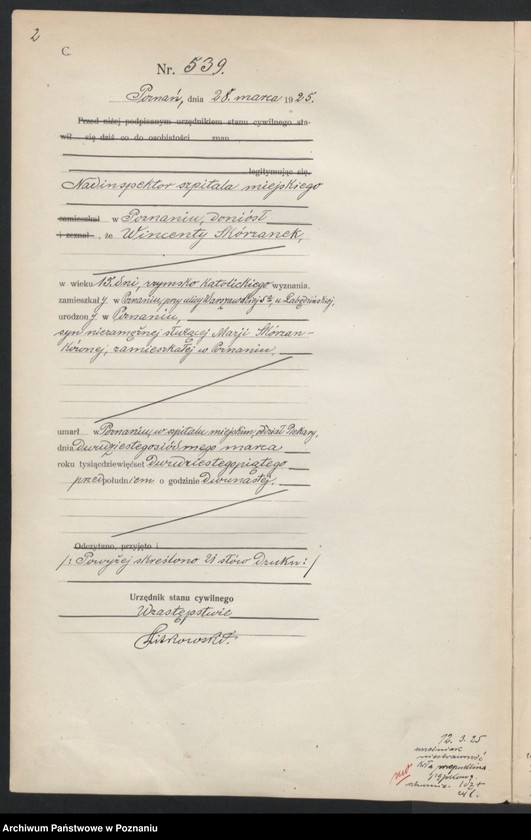 2
C.
Nr. 539.
Poznań, dnia 28. marca 1925.
Przed niżej podpisanym urzędnikiem stanu cywilnego sta-
wił się dziś co do osobistości znan
legitymując się,
Nadinspektor szpitala miejskiego
zamieszkał w Poznaniu, doniósł
i zeznał, że Wincenty Skórzanek,
w wieku 13. dni, rzymsko katolickiego wyznania,
zamieszkał y. w Poznaniu, przy ulicy
urodzon y. w Poznaniu,
syn niezamężnej służącej Marji Skórzan-
kównej, zamieszkałej w Poznaniu,
umarł w Poznaniu, w szpitalu miejskim, oddział Piekary,
dnia Dwudziestegosiódmego marca
roku tysiącdziewięćset Dwudziestegopiątego
przedpołudniem o godzinie Dwunastej.
Odczytano, przyjęto i
/: Powyżej skreślono 21 słów druku: /
Urzędnik stanu cywilnego
W zastępstwie
12. 3. 25
Archiwum Państwowe w Poznaniu